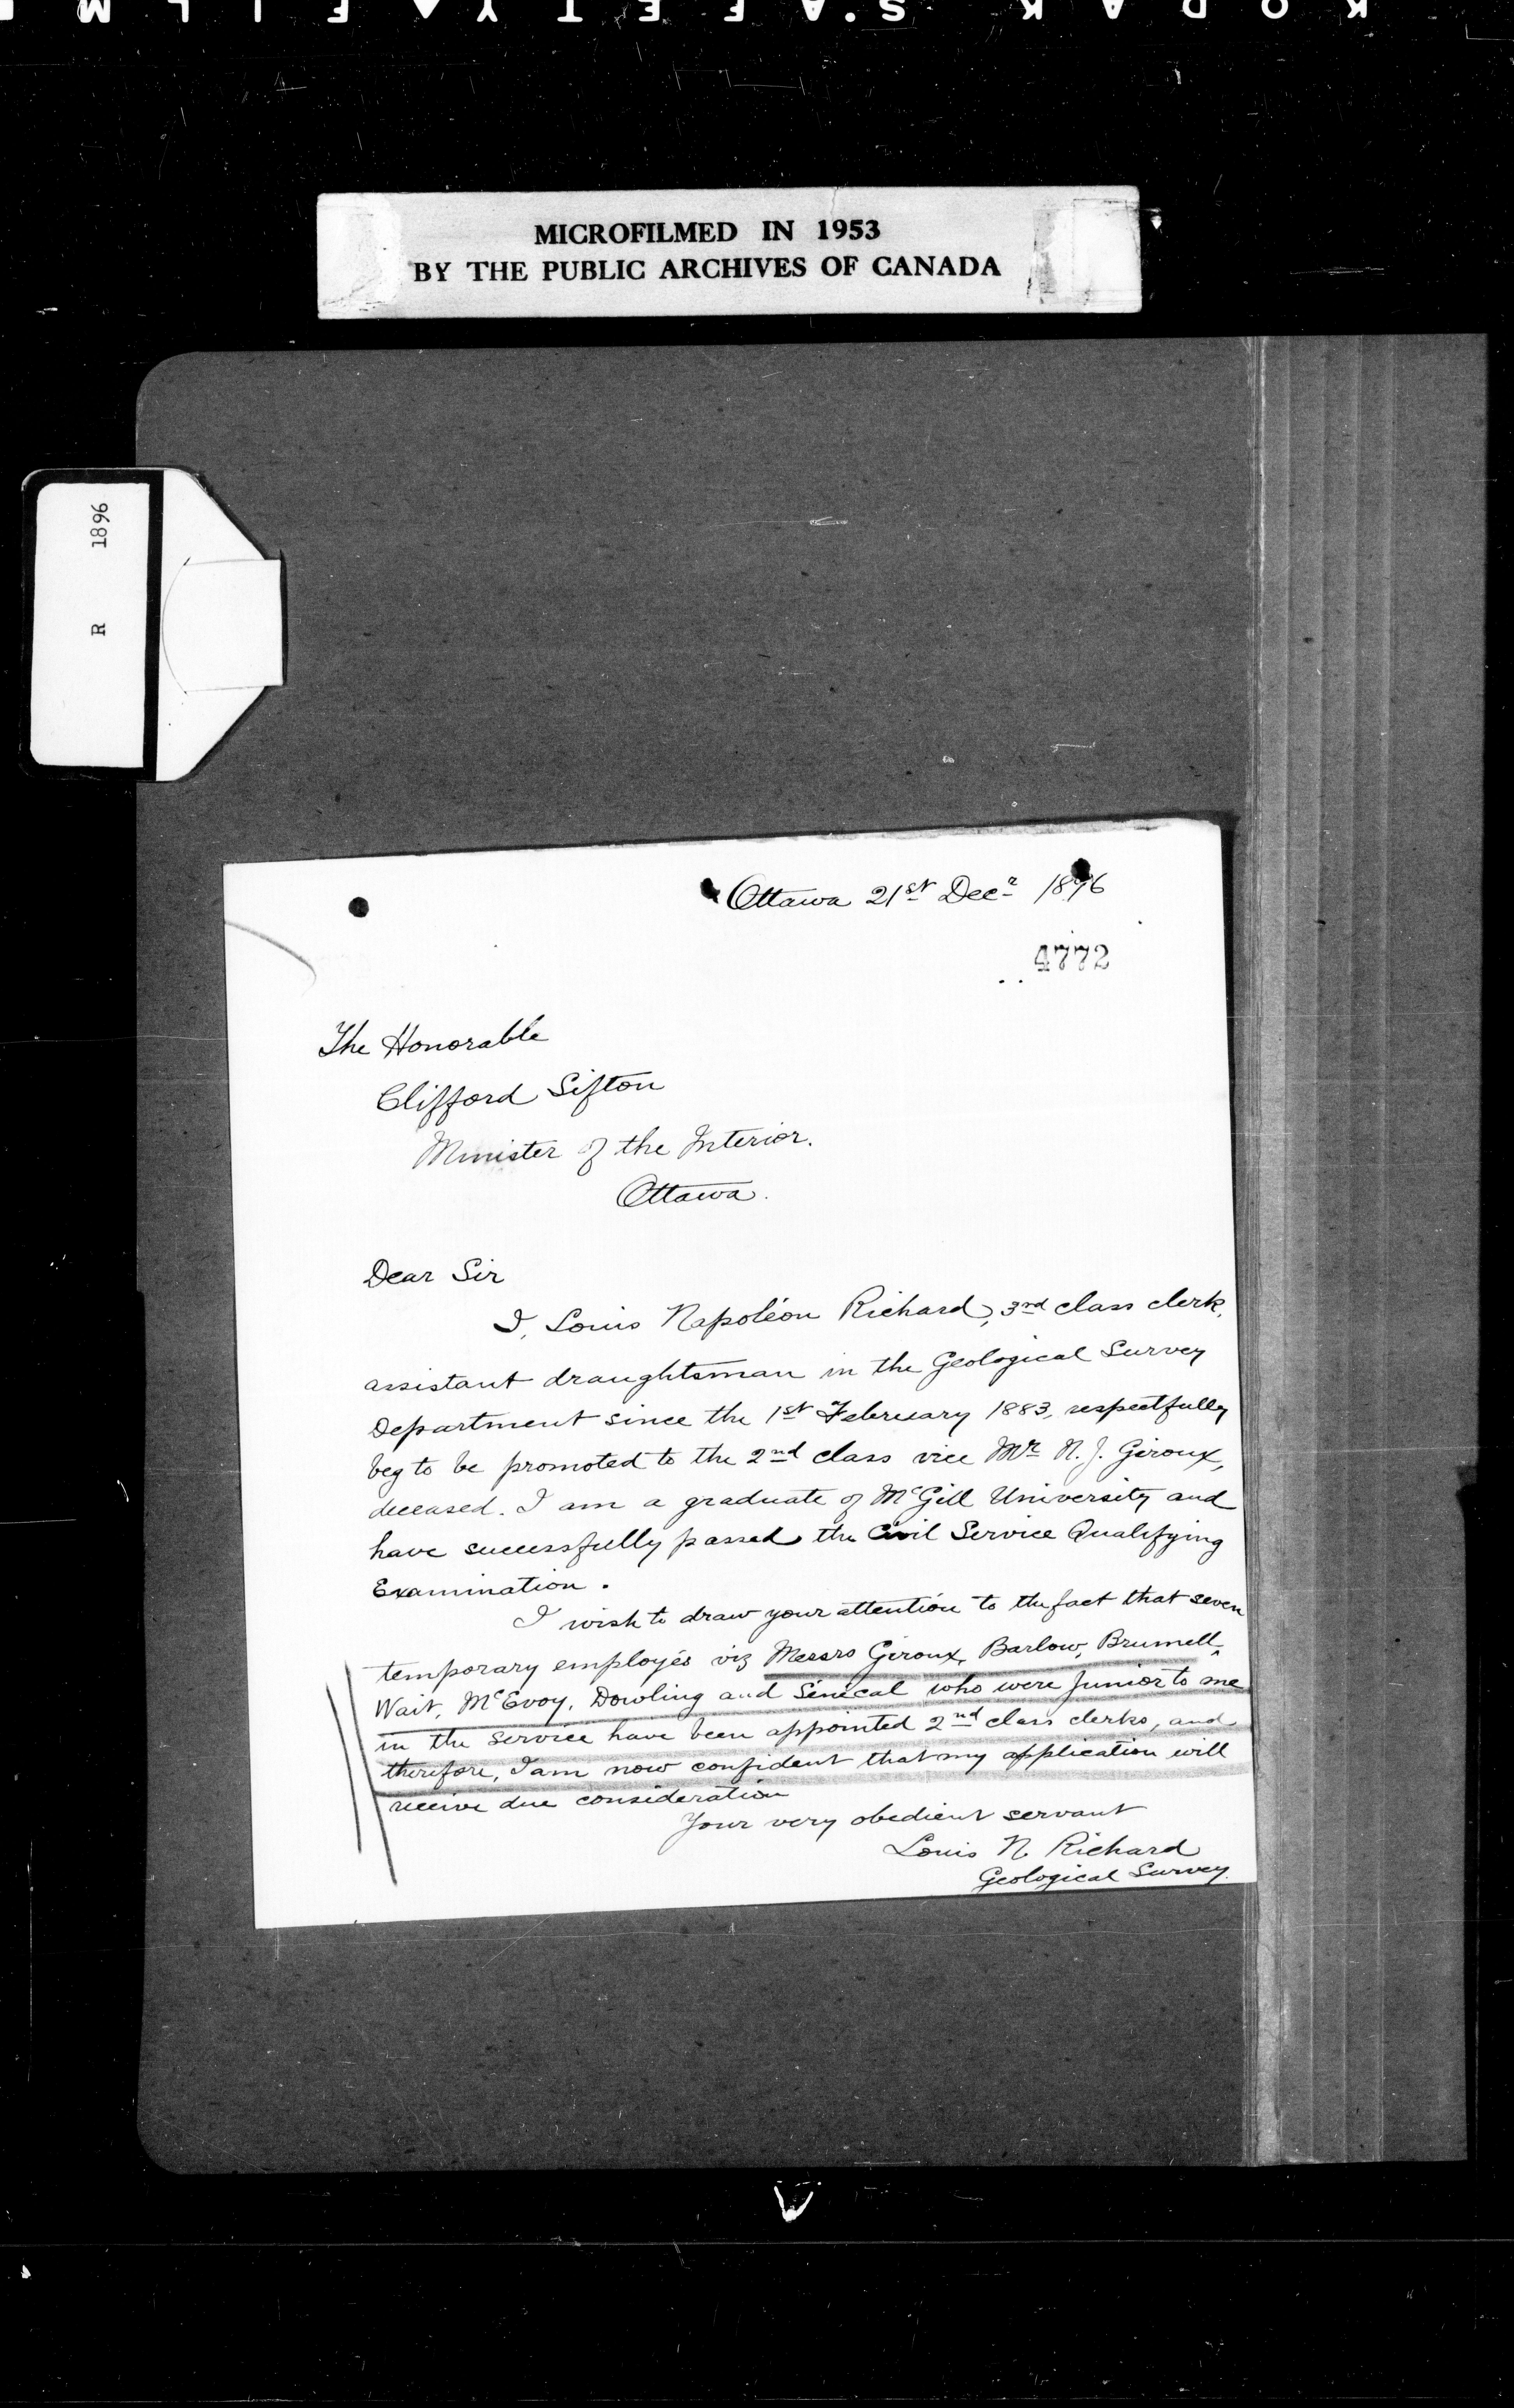 KODAK SAFETY FILM
MICROFILMED IN 1953
BY THE PUBLIC ARCHIVES OF CANADA
R 1896
Ottawa 21st Decr 1896
4772
The Honorable
Clifford Sifton
Minister of the Interior.
Ottawa.
Dear Sir
I, Louis Napoléon Richard, 3rd class clerk,
assistant draughtsman in the Geological Survey
Department since the 1st February 1883, respectfully
beg to be promoted to the 2nd class vice Mr N. J. Giroux,
deceased. I am a graduate of McGill University and
have successfully passed the Civil Service Qualifying
Examination.
I wish to draw your attention to the fact that seven
temporary employés viz Messrs Giroux, Barlow, Brumell,
Wait, McEvoy, Dowling and Sénécal who were junior to me
in the service have been appointed 2nd class clerks, and
therefore, I am now confident that my application will
receive due consideration
Your very obedient servant
Louis N. Richard
Geological Survey.